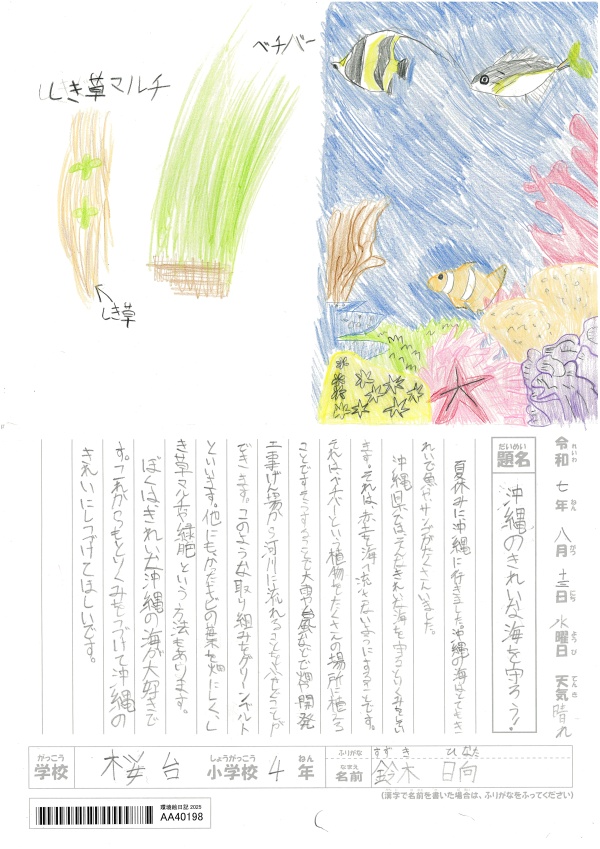 ベチバー
しき草マルチ
しき草
令和 七年 八月 十三日 水曜日 天気 晴れ
れいわ ねん がつ にち ようび てんき
だいめい
題名 沖縄のきれいな海を守ろう!
夏休みに沖縄に行きました。沖縄の海はとてもき
れいで魚やサンゴがたくさんいました。
沖縄県では、そんなきれいな海を守るとりくみをしてい
ます。それは、赤土を海へ流さないようにすることです。
それはベチバーという植物をたくさんの場所に植える
ことです。そうすることで大雨や台風などで畑や開発
工事げん場から河川に流れることを少なくすることが
できます。このような取り組みをグリーンベルト
といいます。他にもかったキビの葉を畑にしく、し
き草マルチや緑肥という方法もあります。
ぼくはきれいな沖縄の海が大好きで
す。これからもとりくみをつづけて沖縄の
きれいにしつづけてほしいです。
がっこう しょうがっこう ねん ふりがな すずき ひなた
学校 桜台 小学校 4年 なまえ 名前 鈴木 日向
(漢字で名前を書いた場合は、ふりがなをふってください)
環境絵日記 2025
AA40198